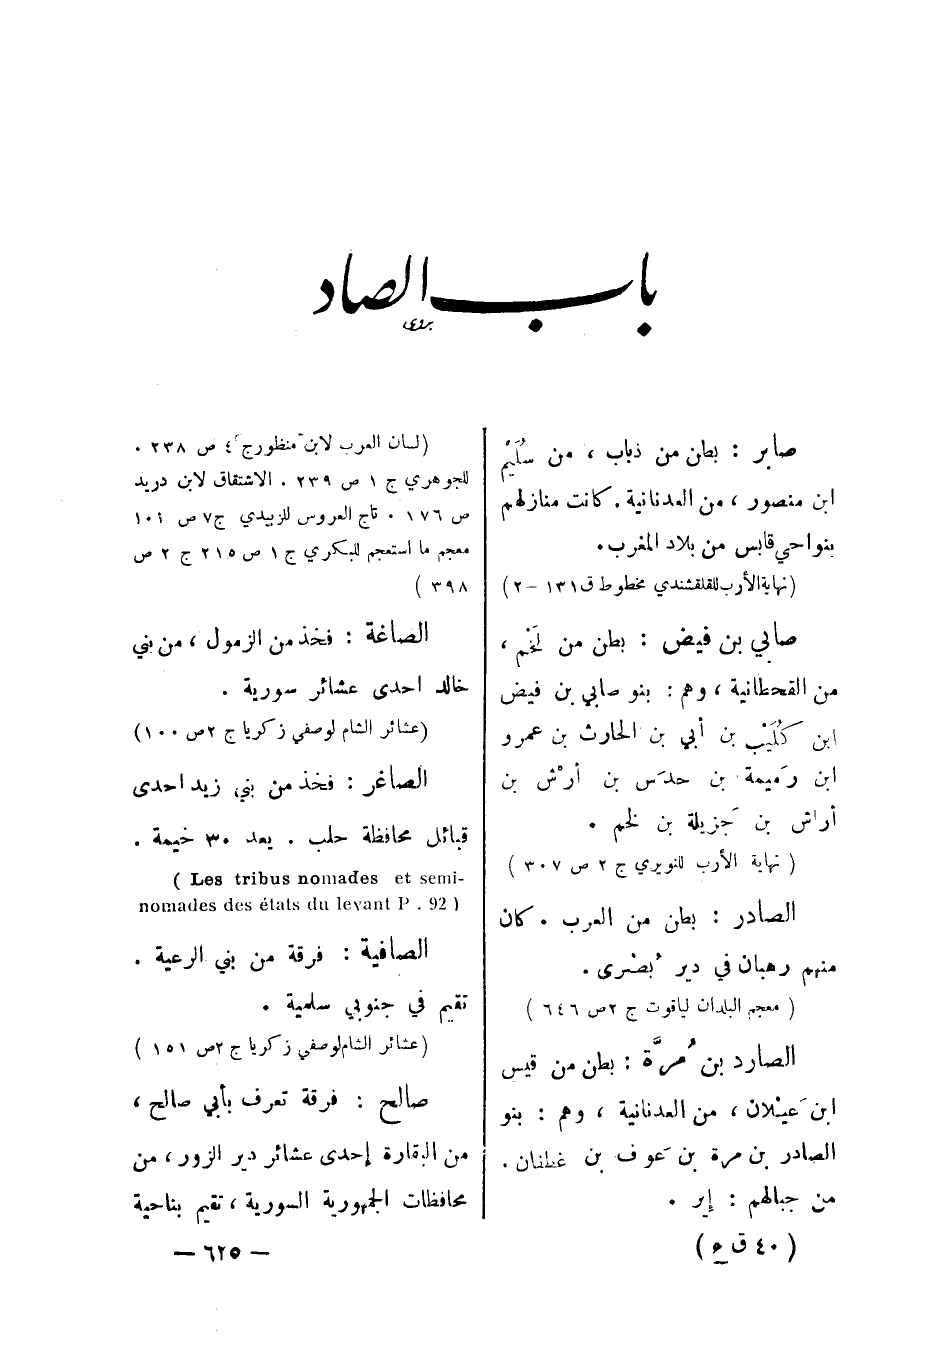 باب الصاد
صابر : بطن من ذباب ، من سُلَيْم
ابن منصور ، من العدنانية . كانت منازلهم
بنواحي قابس من بلاد المغرب .
(نهاية الأرب للقلقشندي مخطوط ق ١٣١ - ٢)
صابي بن فيض : بطن من لَخْم ،
من القحطانية ، وهم : بنو صابي بن فيض
ابن كُلَيْب بن أبي بن الحارث بن عمرو
ابن رَميمة بن حدَس بن أرْش بن
أراش بن جَزيلة بن لخم .
( نهاية الأرب للنويري ج ٢ ص ٣٠٧ )
الصادر : بطن من العرب . كان
منهم رهبان في دير بُصْرى .
( معجم البلدان لياقوت ج ٢ ص ٦٤٦ )
الصارد بن مُرَّة : بطن من قيس
ابن عَيْلان ، من العدنانية ، وهم : بنو
الصادر بن مرة بن عَوف بن غطفان .
من جبالهم : إير .
( ٤٠ ق ع )
(لسان العرب لابن منظور ج ٤ ص ٢٣٨ .
للجوهري ج ١ ص ٢٣٩ . الاشتقاق لابن دريد
ص ١٧٦ . تاج العروس للزبيدي ج ٧ ص ١٠١
معجم ما استعجم للبكري ج ١ ص ٢١٥ ج ٢ ص
٣٩٨ )
الصاغة : فخذ من الزمول ، من بني
خالد احدى عشائر سورية .
(عشائر الشام لوصفي زكريا ج ٢ ص ١٠٠)
الصاغر : فخذ من بني زيد احدى
قبائل محافظة حلب . يعد ٣٠ خيمة .
( Les tribus nomades et semi-
nomades des états du levant P . 92 )
الصافية : فرقة من بني الرعية .
تقيم في جنوبي سلمية .
(عشائر الشام لوصفي زكريا ج ٢ ص ١٥١ )
صالح : فرقة تعرف بأبي صالح ،
من البقارة إحدى عشائر دير الزور ، من
محافظات الجمهورية السورية ، تقيم بناحية
— ٦٢٥ —